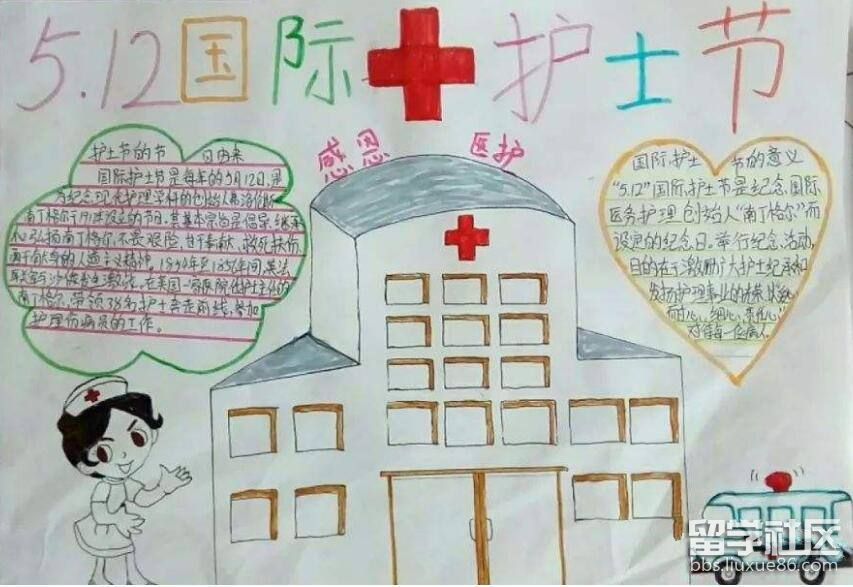 5.12国际护士节
感恩 医护
护士节的节 日由来
国际护士节是每年的5月12日,是
为纪念现代护理学科的创始人弗洛伦斯
南丁格尔于1912年设立的节日,其基本宗旨是倡导、继承
和弘扬南丁格尔不畏艰险、甘于奉献、救死扶伤
勇于献身的人道主义精神。
南丁格尔,带领38名护士奔走前线,参加
护理伤病员的工作。
国际护士 节的意义
“5.12”国际护士节是纪念国际
医务护理创始人“南丁格尔”而
设定的纪念日。举行纪念活动,
目的在于激励广大护士继承和
发扬护理事业的
耐心、细心、责任心
对待每一位病人
留学社区
bbs.liuxue86.com